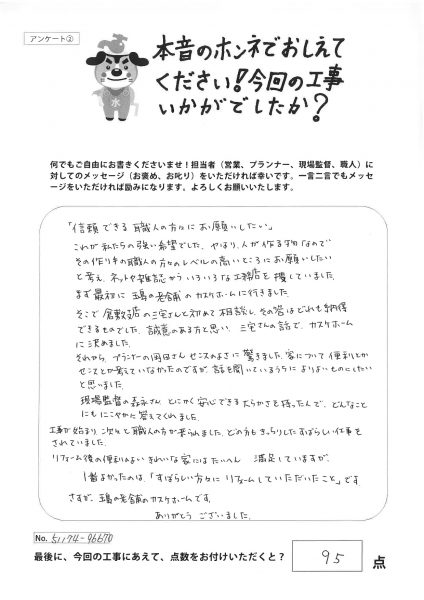 アンケート②
本音のホンネでおしえて
ください!今回の工事
いかがでしたか?
水
何でもご自由にお書きくださいませ!担当者(営業、プランナー、現場監督、職人)に
対してのメッセージ(お褒め、お叱り)をいただければ幸いです。一言二言でもメッセ
ージをいただければ励みになります。よろしくお願いいたします。
「信頼できる職人の方々にお願いしたい」
これが私たちの強い希望でした。やはり、人が作る物なので
その作り手の職人の方々のレベルの高いところにお願いしたい
と考え、ネットや雑誌からいろいろな工務店を捜していました。
まず最初に玉島の老舗のカスケホームに行きました。
そこで倉敷支店の三宅さんと初めて相談し、その答はどれも納得
できるものでした。誠意のある方と思い、三宅さんの話で、カスケホーム
に決めました。
それから、プランナーの岡田さん、センスのよさに驚きました。家について便利とか
センスとか考えていなかったのですが、話を聞いているうちによりよいものにしたい
と思いました。
現場監督の森永さん、とにかく安心できる大らかさを持った人で、どんなこと
にもにこやかに答えてくれました。
工事が始まり、次々と職人の方が来られました。どの方もきっちりしたすばらしい仕事を
されていました。
リフォーム後の便利のよいきれいな家にはたいへん 満足していますが、
1番よかったのは、「すばらしい方々にリフォームしていただいたこと」です
さすが、玉島の老舗のカスケホームです。
ありがとう ございました。
No. 51174-96670
最後に、今回の工事にあえて、点数をお付けいただくと? 95 点